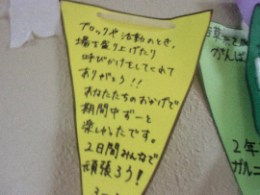 ブロックや活動のとき、
場を盛り上げたり
呼びかけをしてくれて
ありがとう!!
あなたたちのおかげで
期間中ずーと
楽しかったです。
2日間みんなで
頑張ろう!
がんば
2年
ガルニ